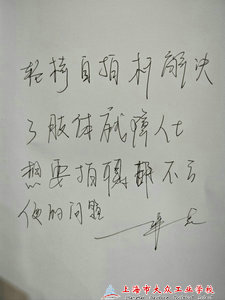 轮椅自拍杆解决
了肢体残障人士
想要拍摄却不方
便的问题
上海市大众工业学校